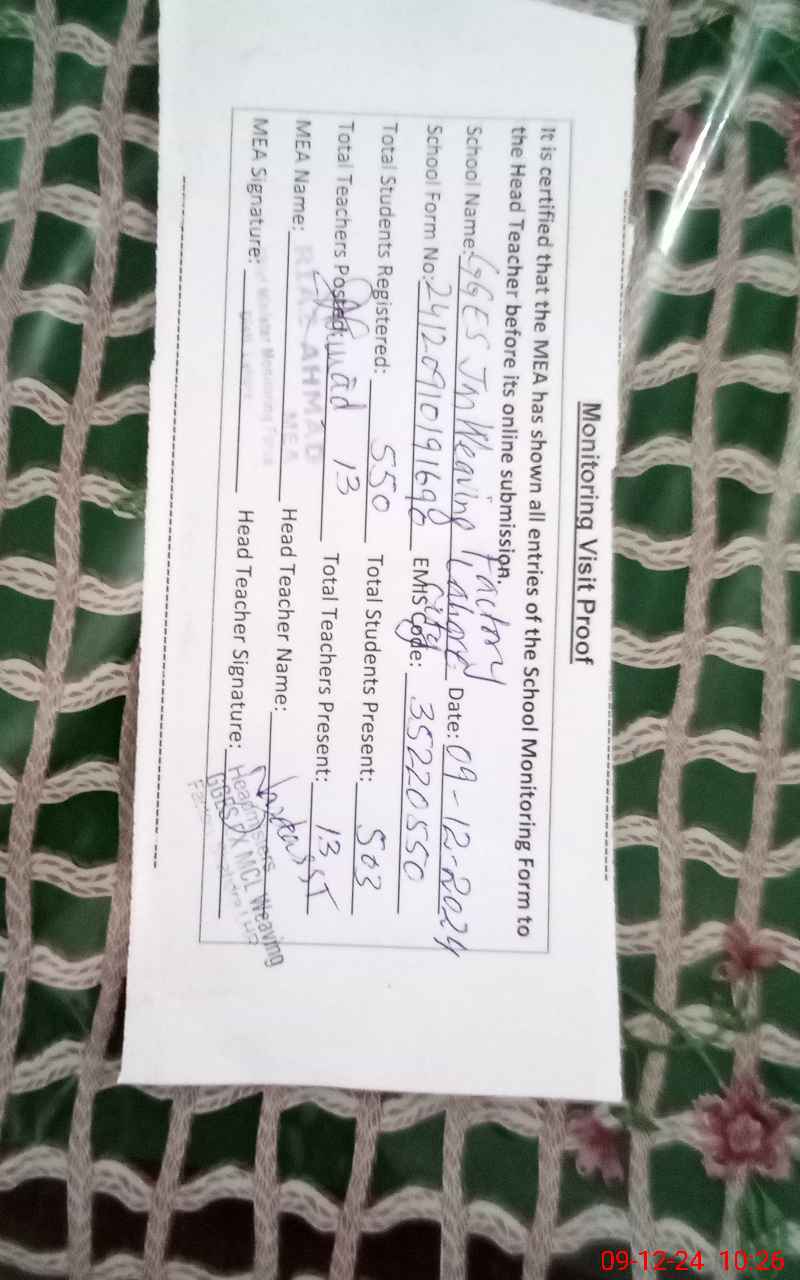 Monitoring Visit Proof
It is certified that the MEA has shown all entries of the School Monitoring Form to
the Head Teacher before its online submission.
School Name: GGES Weaving Factory Lahore City Date: 09-12-2024
School Form No: EMIS Code: 35220550
Total Students Registered: 550 Total Students Present: 503
Total Teachers Posted: 13 Total Teachers Present: 13
MEA Name: AHMAD Head Teacher Name:
MEA
MEA Signature: Head Teacher Signature:
Headmistress
MCL Weaving
09-12-24 10:26